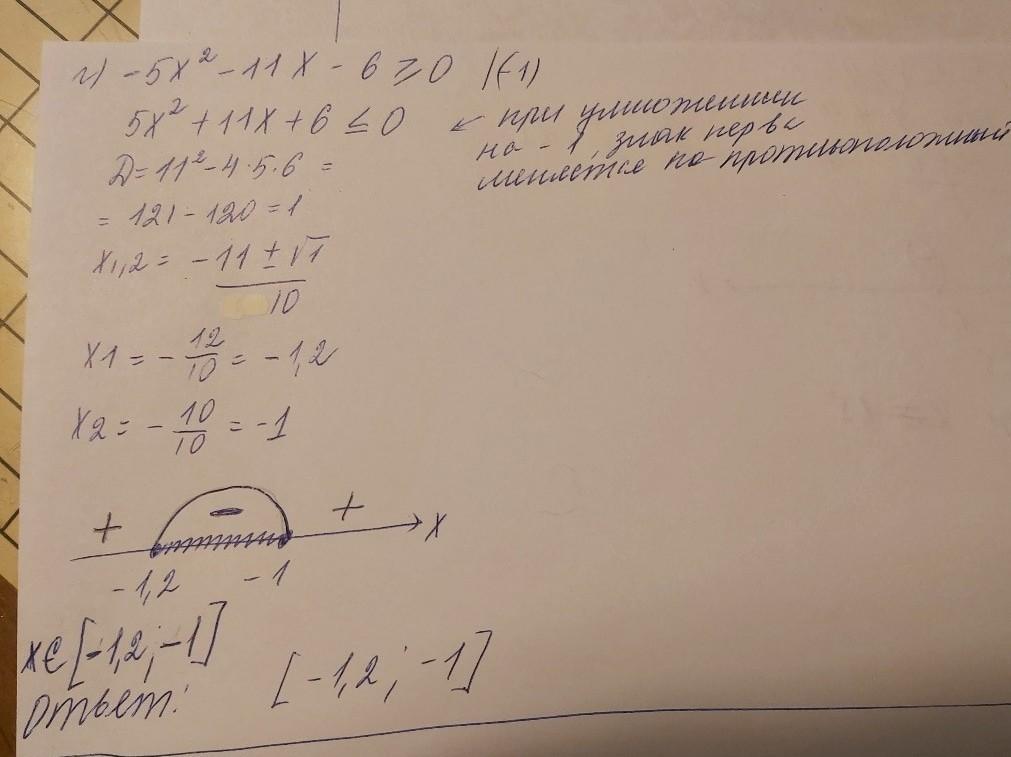 г) -5x² - 11x - 6 ≥ 0 |(-1)
5x² + 11x + 6 ≤ 0 ← при умножении
на -1, знак нерва
меняется на противоположный
D = 11² - 4·5·6 =
= 121 - 120 = 1
x1,2 = -11 ± √1
10
x1 = - 12/10 = -1,2
x2 = - 10/10 = -1
+ - + x
-1,2 -1
x∈[-1,2; -1]
Ответ: [-1,2; -1]